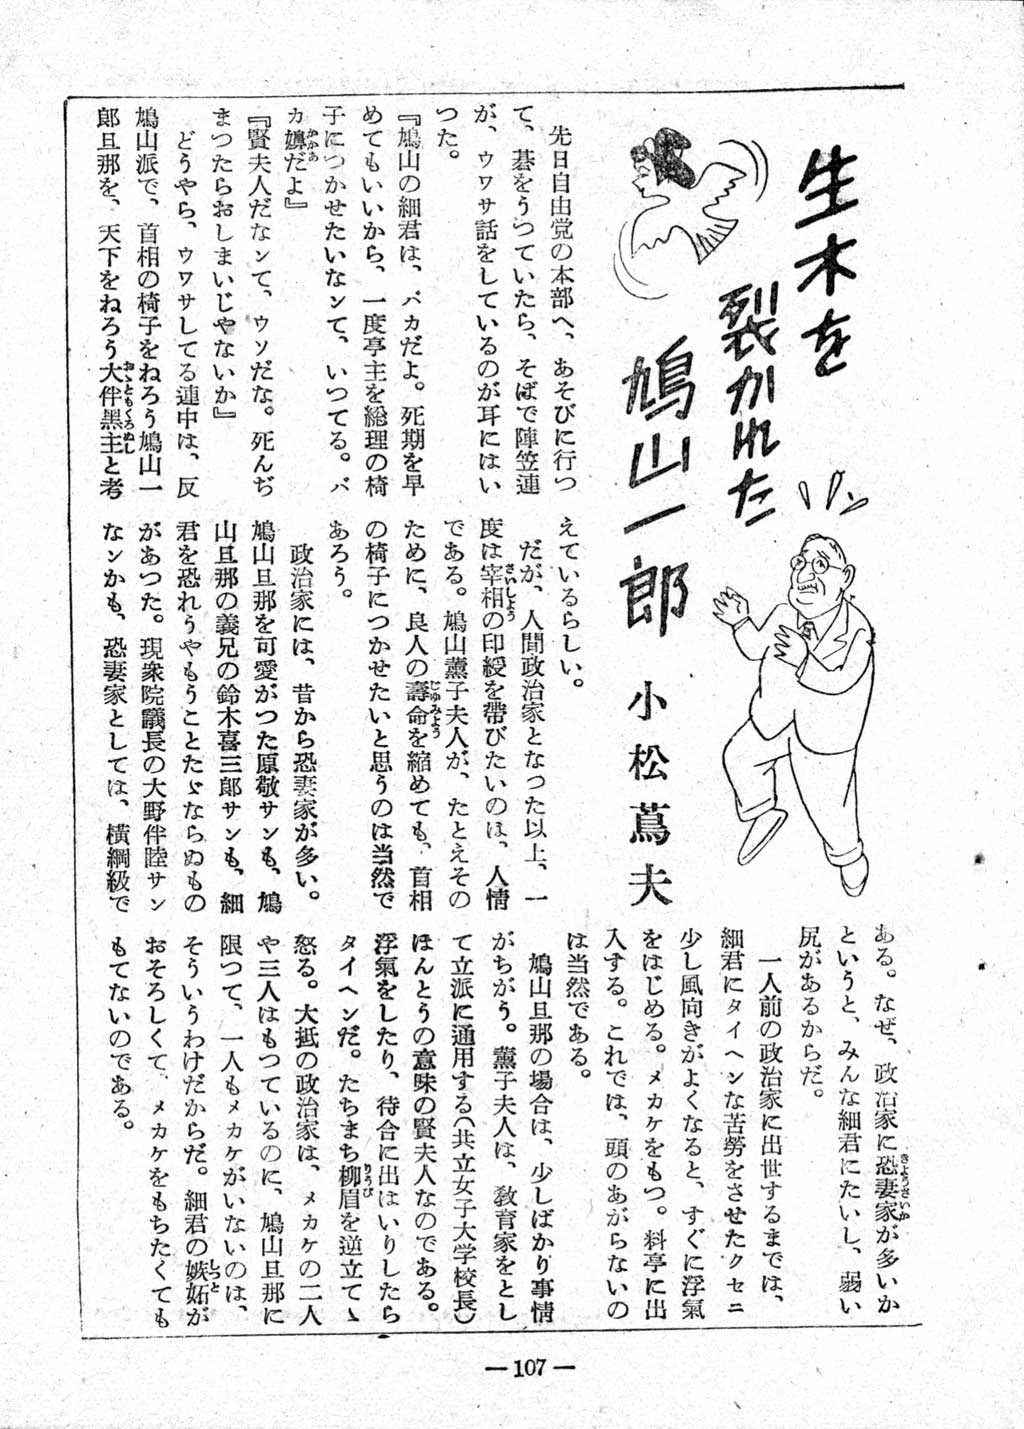 生木を
裂かれた
鳩山一郎
小松蔦夫
先日自由党の本部へ、あそびに行つ
て、碁をうつていたら、そばで陣笠連
が、ウワサ話をしているのが耳にはい
つた。
『鳩山の細君は、バカだよ。死期を早
めてもいいから、一度亭主を総理の椅
子につかせたいなンて、いつてる。バ
カ嬶だよ』
『賢夫人だなンて、ウソだな。死んぢ
まつたらおしまいじやないか』
どうやら、ウワサしてる連中は、反
鳩山派で、首相の椅子をねろう鳩山一
郎旦那を、天下をねろう大伴黒主と考
えているらしい。
だが、人間政治家となつた以上、一
度は宰相の印綬を帯びたいのは、人情
である。鳩山薫子夫人が、たとえその
ために、良人の壽命を縮めても、首相
の椅子につかせたいと思うのは当然で
あろう。
政治家には、昔から恐妻家が多い。
鳩山旦那を可愛がつた原敬サンも、鳩
山旦那の義兄の鈴木喜三郎サンも、細
君を恐れうやもうことたゞならぬもの
があつた。現衆院議長の大野伴睦サン
なンかも、恐妻家としては、横綱級で
ある。なぜ、政治家に恐妻家が多いか
というと、みんな細君にたいし、弱い
尻があるからだ。
一人前の政治家に出世するまでは、
細君にタイヘンな苦労をさせたクセニ
少し風向きがよくなると、すぐに浮氣
をはじめる。メカケをもつ。料亭に出
入する。これでは、頭のあがらないの
は当然である。
鳩山旦那の場合は、少しばかり事情
がちがう。薫子夫人は、教育家をとし
て立派に通用する（共立女子大学校長）
ほんとうの意味の賢夫人なのである。
浮氣をしたり、待合に出はいりしたら
タイヘンだ。たちまち柳眉を逆立てゝ
怒る。大抵の政治家は、メカケの二人
や三人はもつているのに、鳩山旦那に
限つて、一人もメカケがいないのは、
そういうわけだからだ。細君の嫉妬が
おそろしくて、メカケをもちたくても
もてないのである。
— 107 —